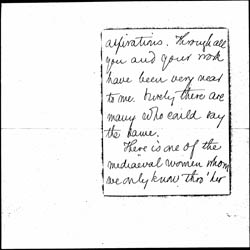 aspirations. Through all
you and your work
have been very near
to me. Surely there are
many who could say
the same.
There is one of the
mediaeval women whom
we only know thro' her